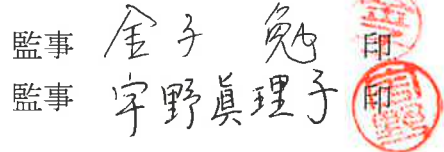 監事 金子 勉 印
監事 宇野眞理子 印